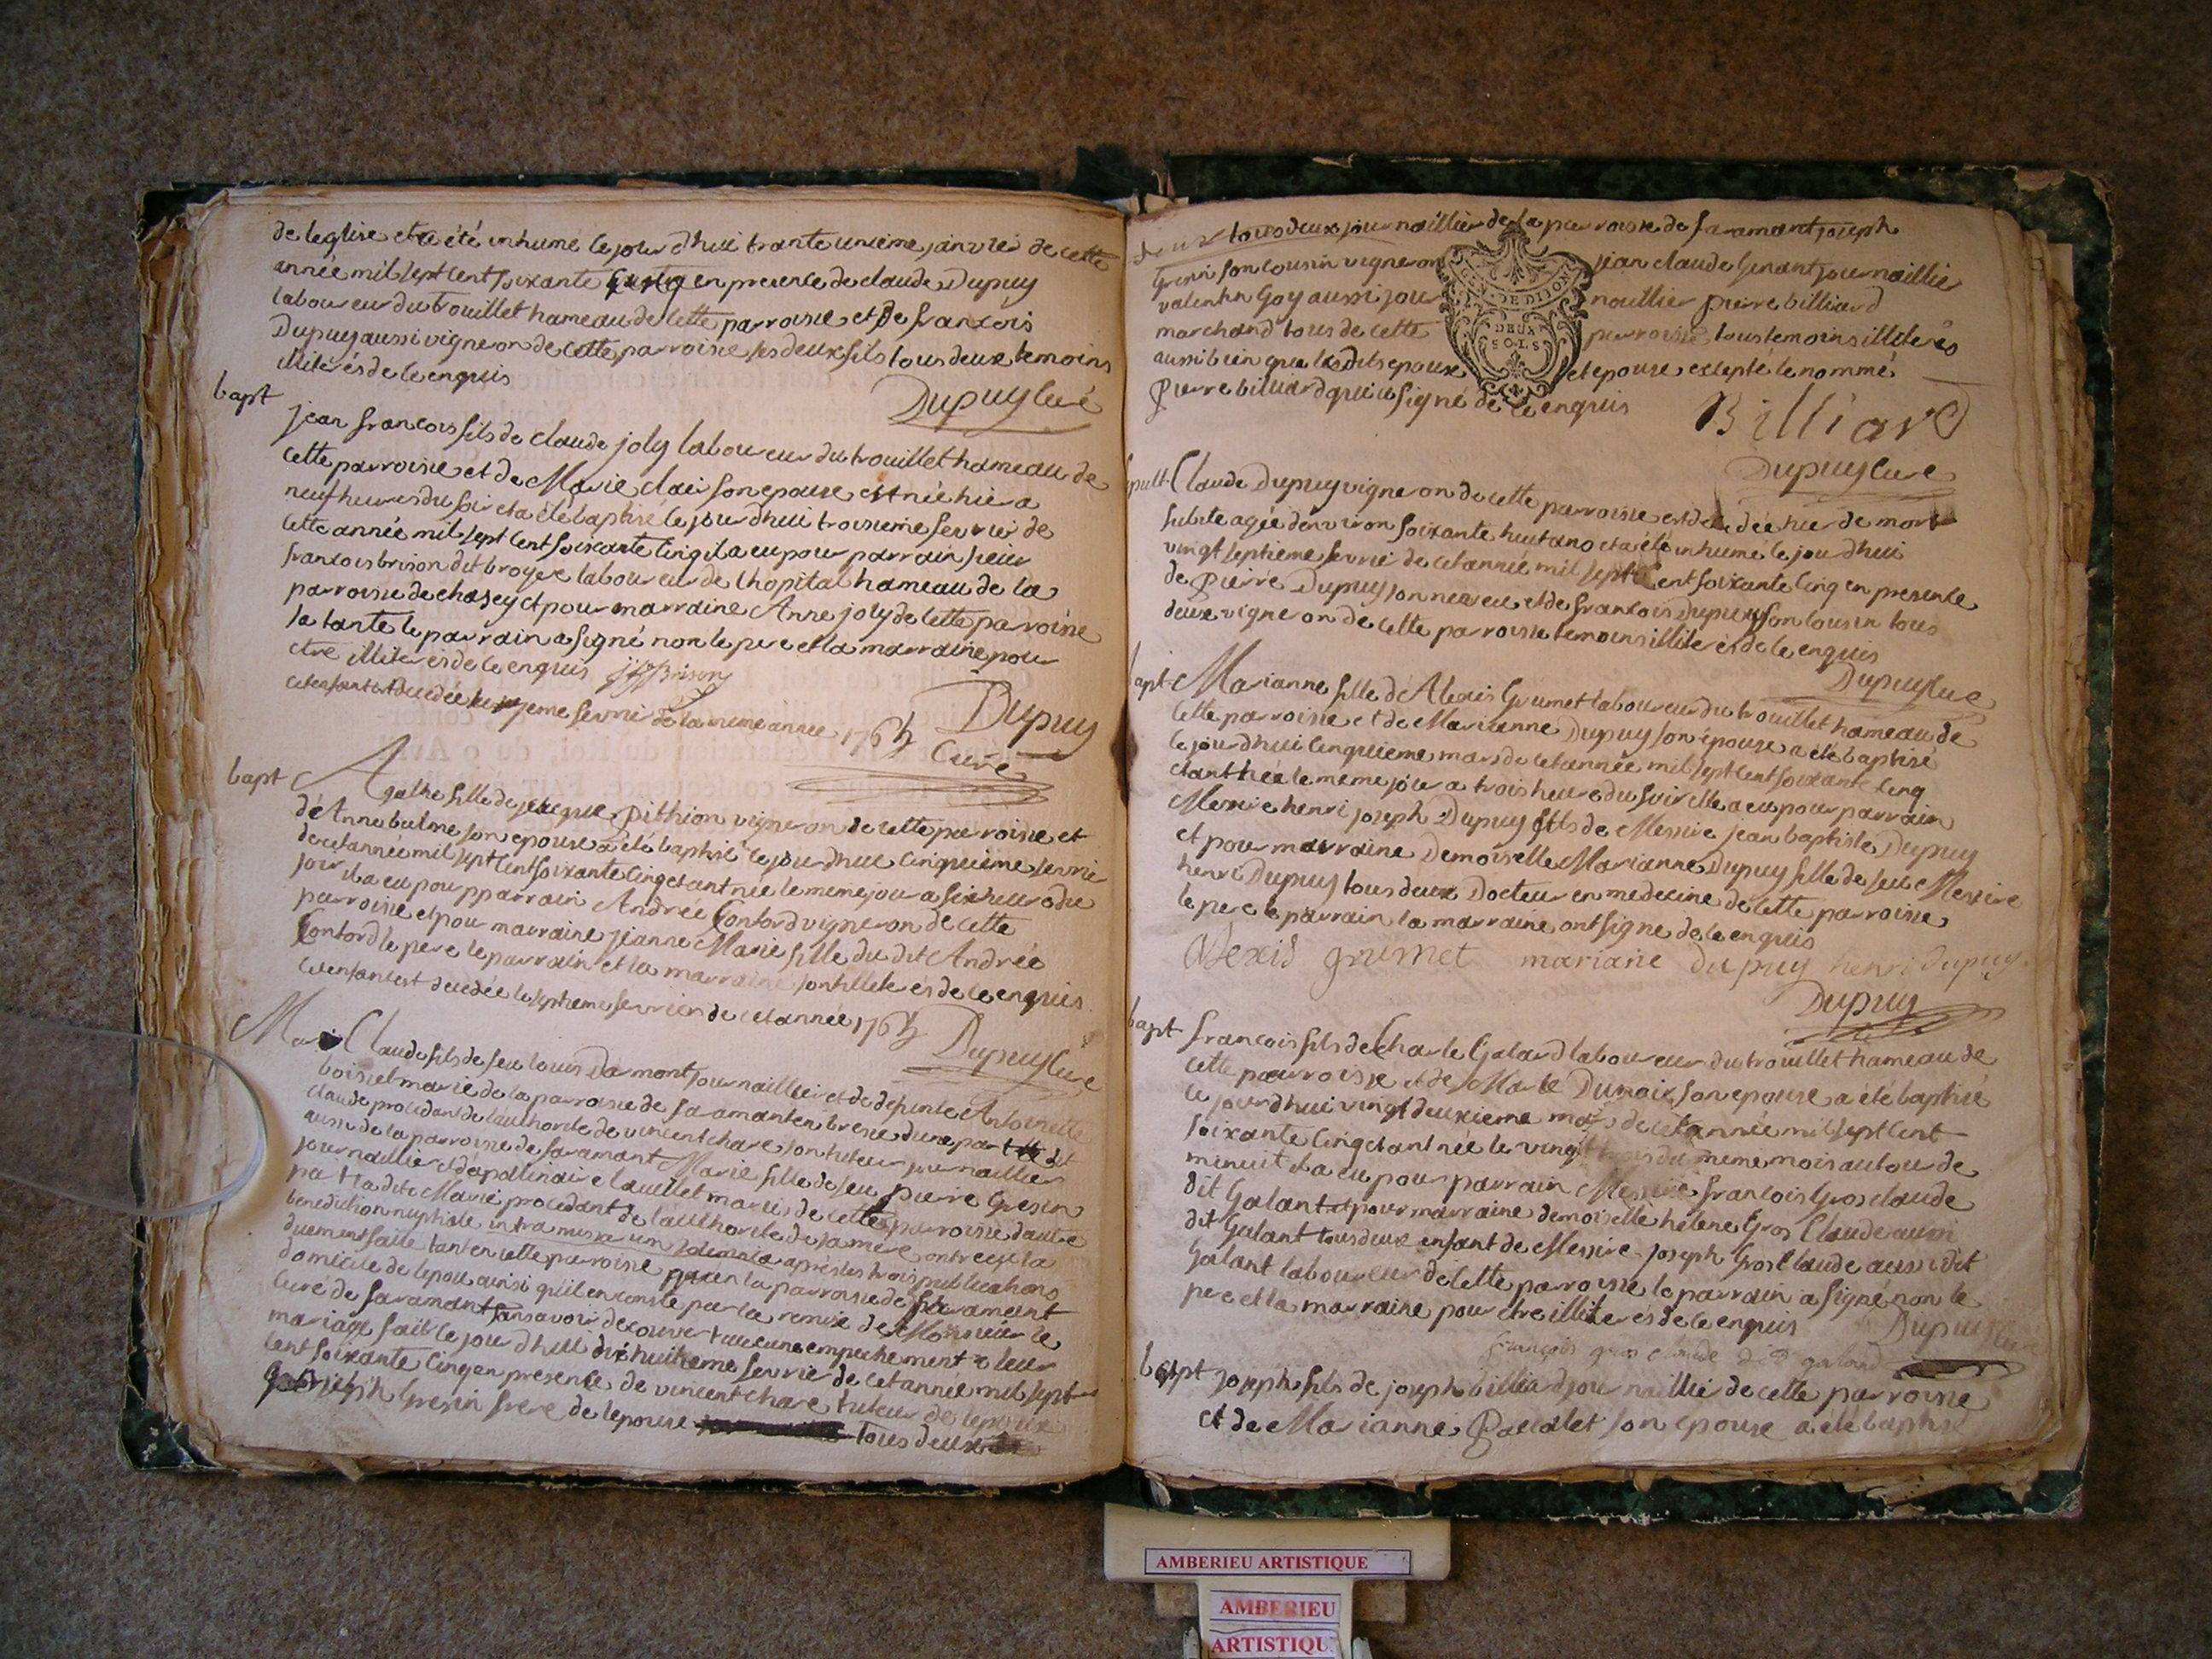 de leglise et a été inhumé le jour dhui trante unieme janvié de cette
année mil sept cent soixante cinq en presence de claude Dupuy
laboureur du trouillet hameau de cette parroisse et de francois
Dupuy aussi vigneron de cette parroisse ses deux fils tous deux temoins
illiterés de ce enquis
Dupuy curé
bapt
jean francois fils de claude joly laboureur du trouillet hameau de
cette parroisse et de Marie clair son epouse est né hier a
neuf heures du soir et a été baptisé le jour dhui troisieme fevrier de
cette année mil sept cent soixante cinq il a eu pour parrain sieur
francois brison dit broyere laboureur de lhopital hameau de la
parroisse de chasey et pour marraine Anne joly de cette parroisse
sa tante le parrain a signé non le pere et la marraine pour
etre illiterés de ce enquis Brison
cet enfant est decedée le jeme fevrié de la meme année 1765
Dupuy
Curé
bapt
Agathe fille de jacque pithion vigneron de cette parroisse et
de Anne balme son epouse a été baptisé le jour dhui cinquieme fevrié
de cet année mil sept cent soixante cinq etant née le meme jour a six heures du
jour il a eu pour pparrain Andrée Contord vigneron de cette
parroisse et pour marraine jeanne Marie fille du dit Andrée
Contord le pere le parrain et la marraine sont illiterés de ce enquis
cet enfant est decedée le septieme fevrier de cet année 1765
Dupuy Curé
Mari Claude fils de feu louis Damont journaillier et de defunte Antoinette
boisiel mariè de la parroisse de saramant en bresse dune part le dit
claude procedant de lauthorité de vincent chare son tuteur journaillier
aussi de la parroisse de saramant Marie fille de feu pierre Gresin
journaillier et dapollinaire lauellet mariés de cette parroisse dautre
part la dite Marie procedant de lauthorité de sa mere ont reçu la
benediction nuptiale intra missarum solemnia apres les trois publications
duement faite tant en cette parroisse quen la parroisse de saramant
domicile de lepoux ainsi quil en conste par la remise de Monsieur le
curé de saramant sans avoir decouvert aucune empechement a leur
mariage fait le jour dhui dixhuitieme fevrié de cet année mil sept
cent soixante cinq en presence de vincent chare tuteur de lepoux
joseph Gresin frere de lepouse tous deux
tous deux journaillier de la parroisse de saramant joseph
Gresin son cousin vigneron jean claude Genant journaillier
valentin Goy aussi journaillier pierre billiard
marchand tous de cette parroisse tous temoins illiterés
aussi bien que les dits epoux et epouse excepté le nommé
Pierre billiard qui a signé de ce enquis
GEN. DE DIJON
DEUX
SOLS
Billiard
Dupuy Curé
sepult
Claude Dupuy vigneron de cette parroisse est decedée hier de mort
subite agée denviron soixante huit ans et a été inhumé le jour dhui
vingt septieme fevrié de cet année mil sept cent soixante cinq en presence
de Pierre Dupuy son neveu et de francois Dupuy son cousin tous
deux vigneron de cette parroisse temoins illiterés de ce enquis
Dupuy Curé
bapt
Marianne fille de Alexis Grumet laboureur du trouillet hameau de
cette parroisse et de Marianne Dupuy son epouse a été baptisé
le jour dhui cinquieme mars de cet année mil sept cent soixante cinq
etant née le meme jour a trois heure du soir elle a eu pour parrain
Messire henri joseph Dupuy fils de Messire jean baptiste Dupuy
et pour marraine Demoiselle Marianne Dupuy fille de feu Messire
henri Dupuy tous deux Docteur en medecine de cette parroisse
le pere le parrain la marraine ont signe de ce enquis
Alexis grumet mariane dupuy henri dupuy
Dupuy
bapt
francois fils de Charle Galard laboureur du trouillet hameau de
cette parroisse et de Marie Dunoix son epouse a été baptisé
le jour dhui vingt deuxieme mars de cet année mil sept cent
soixante cinq etant née le vingt du meme mois autour de
minuit il a eu pour parrain Messire francois Gros claude
dit Galant et pour marraine demoiselle helene Gros Claude aussi
dit Galant tous deux enfant de Messire joseph Gros Claude aussi dit
Galant laboureur de cette parroisse le parrain a signé non le
pere et la marraine pour etre illiterés de ce enquis
Dupuy Curé
françois gros claude dit galand
bapt
joseph fils de joseph billiard journaillier de cette parroisse
et de Marianne Pacalet son epouse a été baptisé
AMBERIEU ARTISTIQUE
AMBERIEU
ARTISTIQU